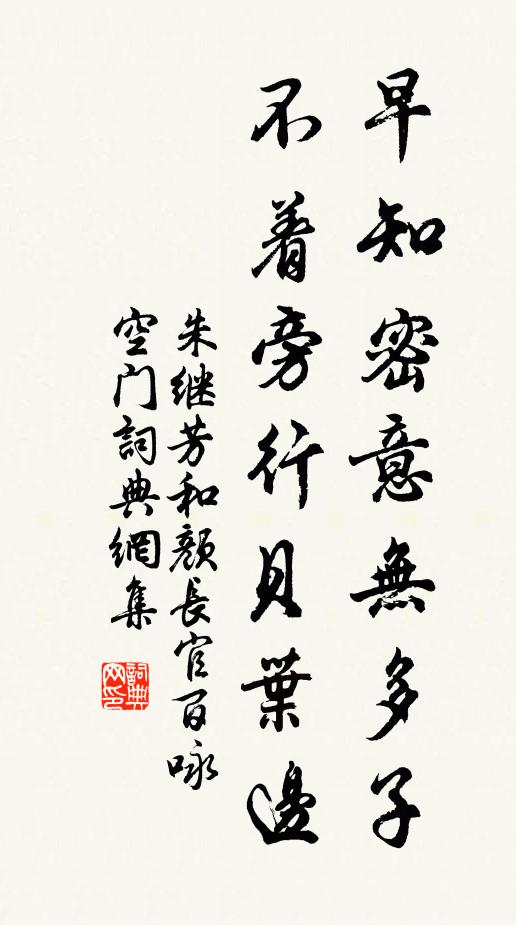 早知密意無多子
不着旁行貝葉邊
朱继芳和顏長官百咏
空门詞典網集
詞典网印